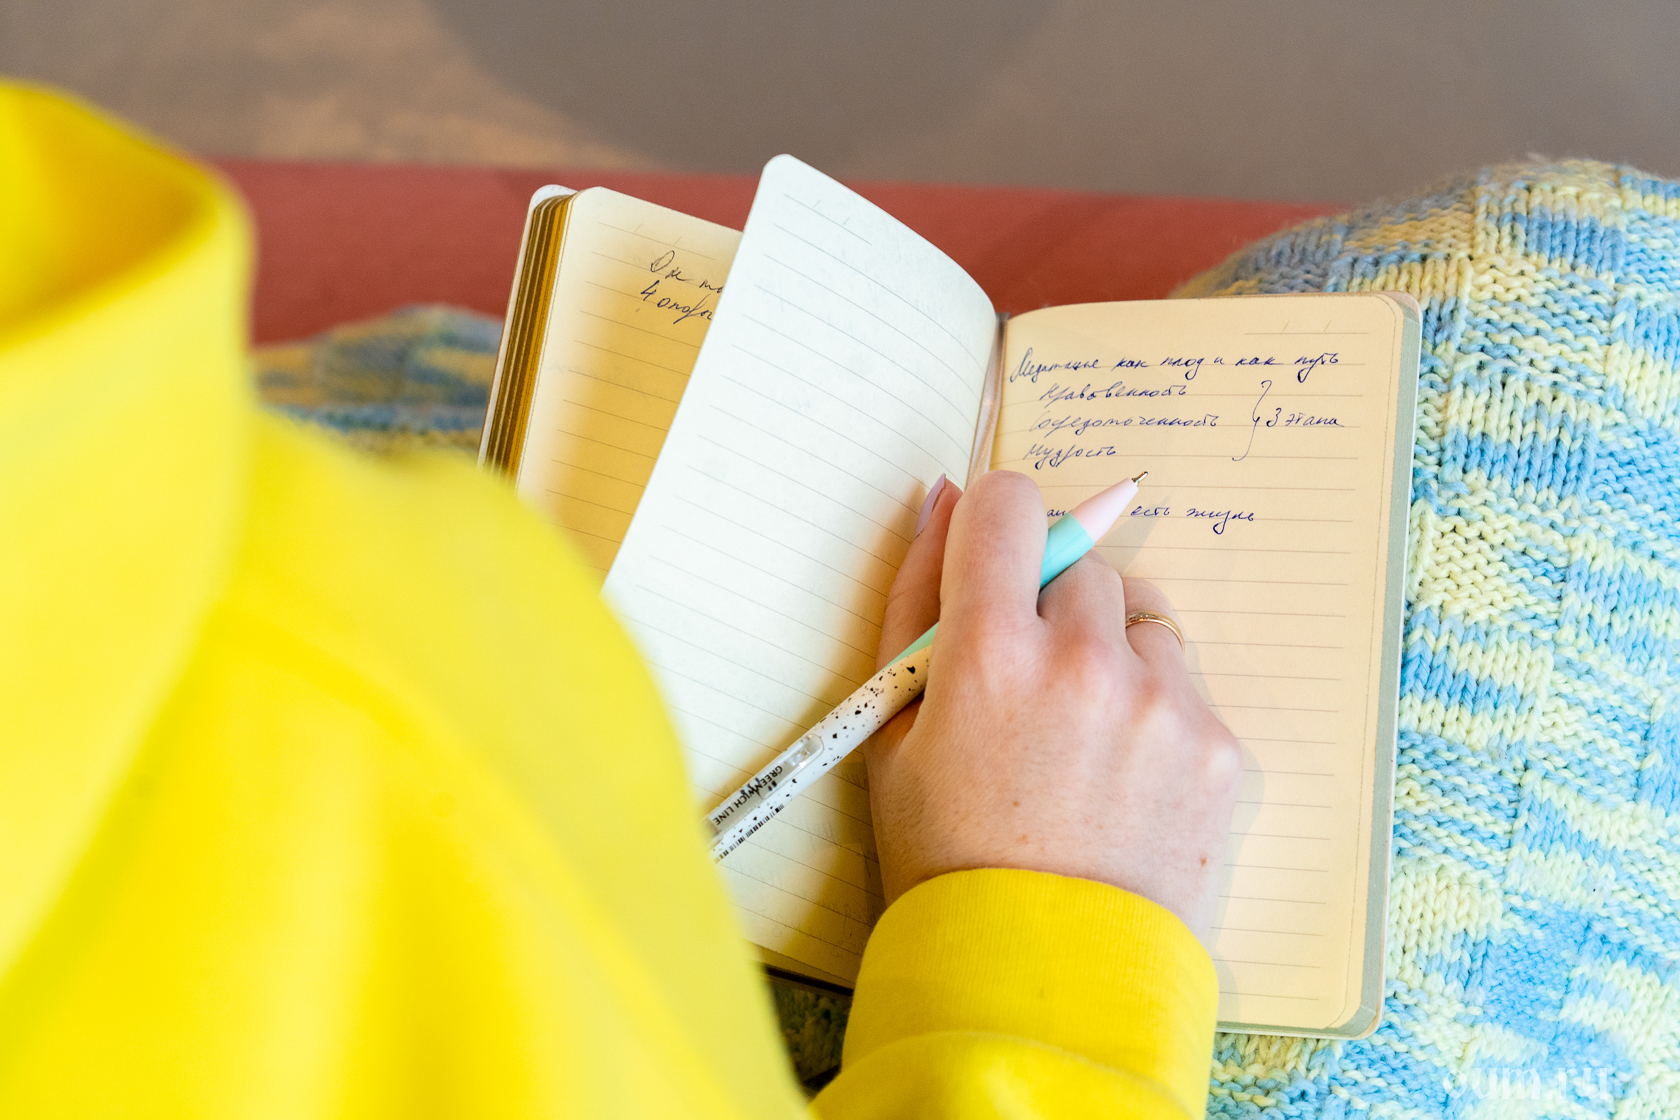 4 опоры
Медитация как плод и как путь
Нравственность
Сосредоточенность
Мудрость
3 этапа
есть жизнь
GREENWICH LINE
oum.ru